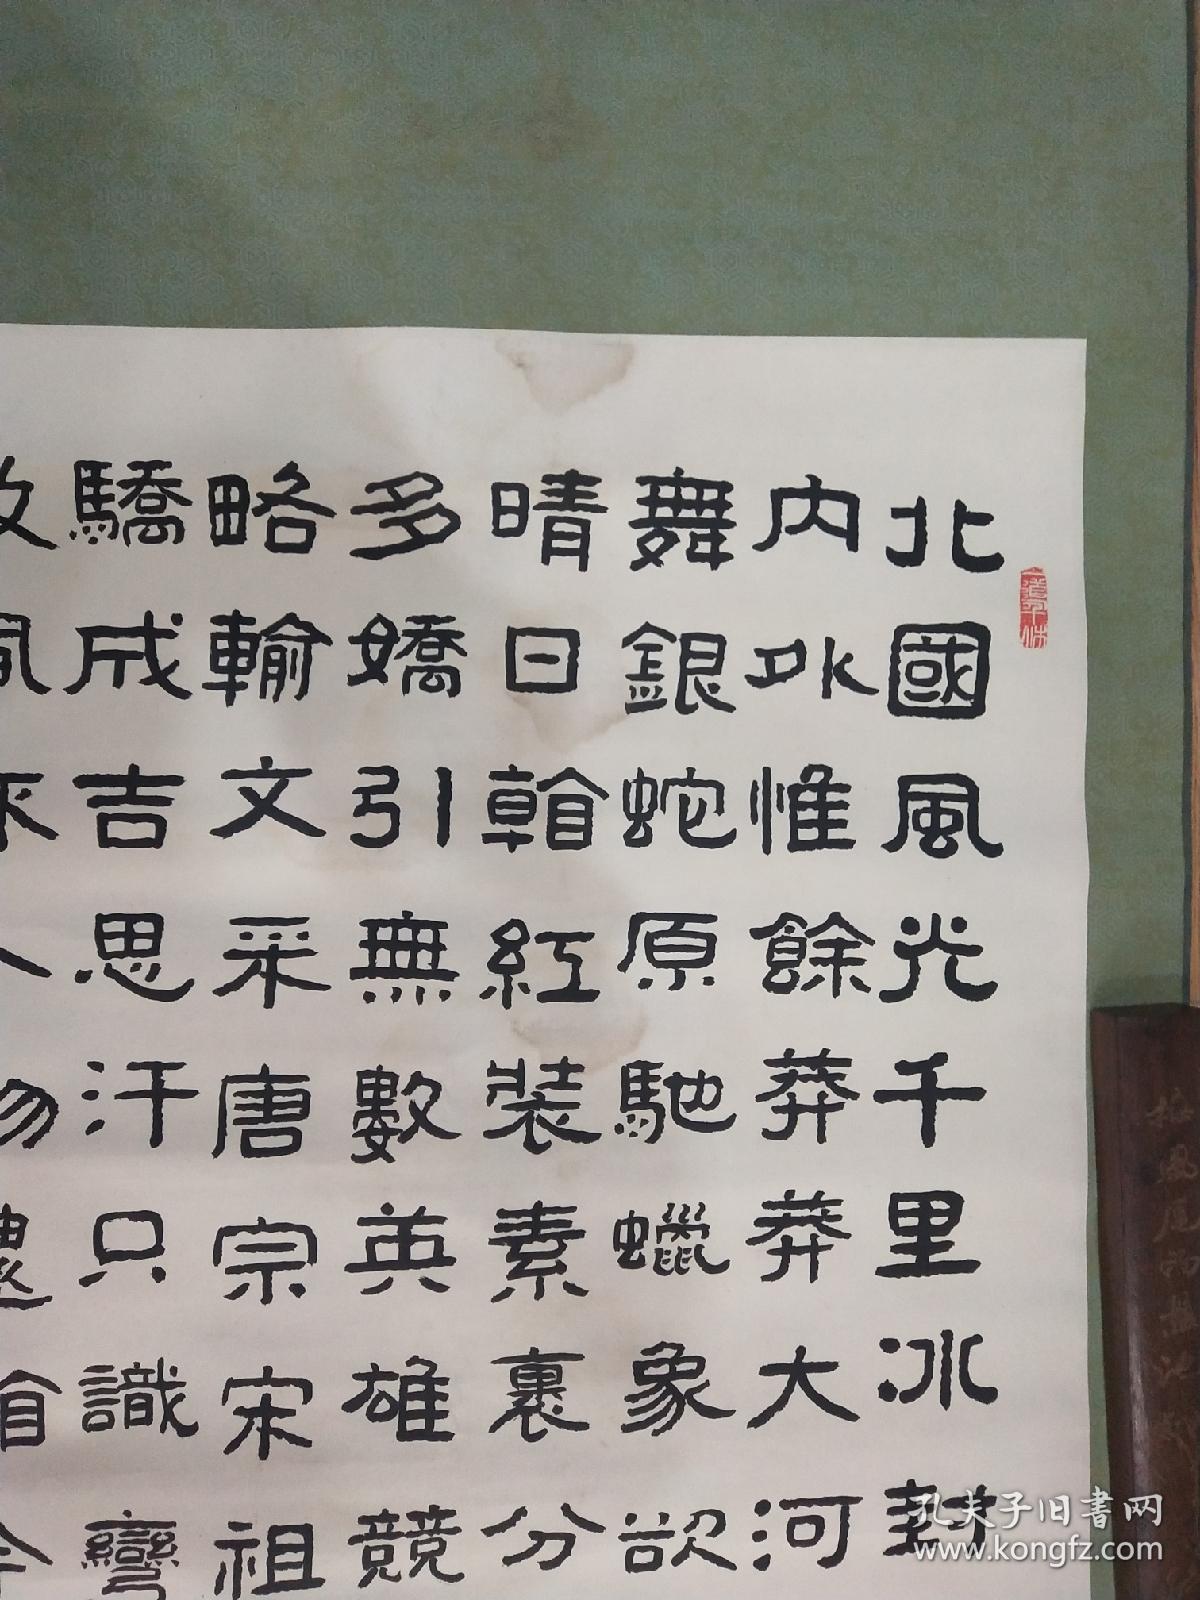 北國風光千里冰封
内外惟餘莽莽大河
舞銀蛇原馳蠟象欲
晴日看紅裝素裹分
多嬌引無數英雄競
略輸文采唐宗宋祖
驕成吉思汗只識彎
孔夫子旧書网
www.kongfz.com